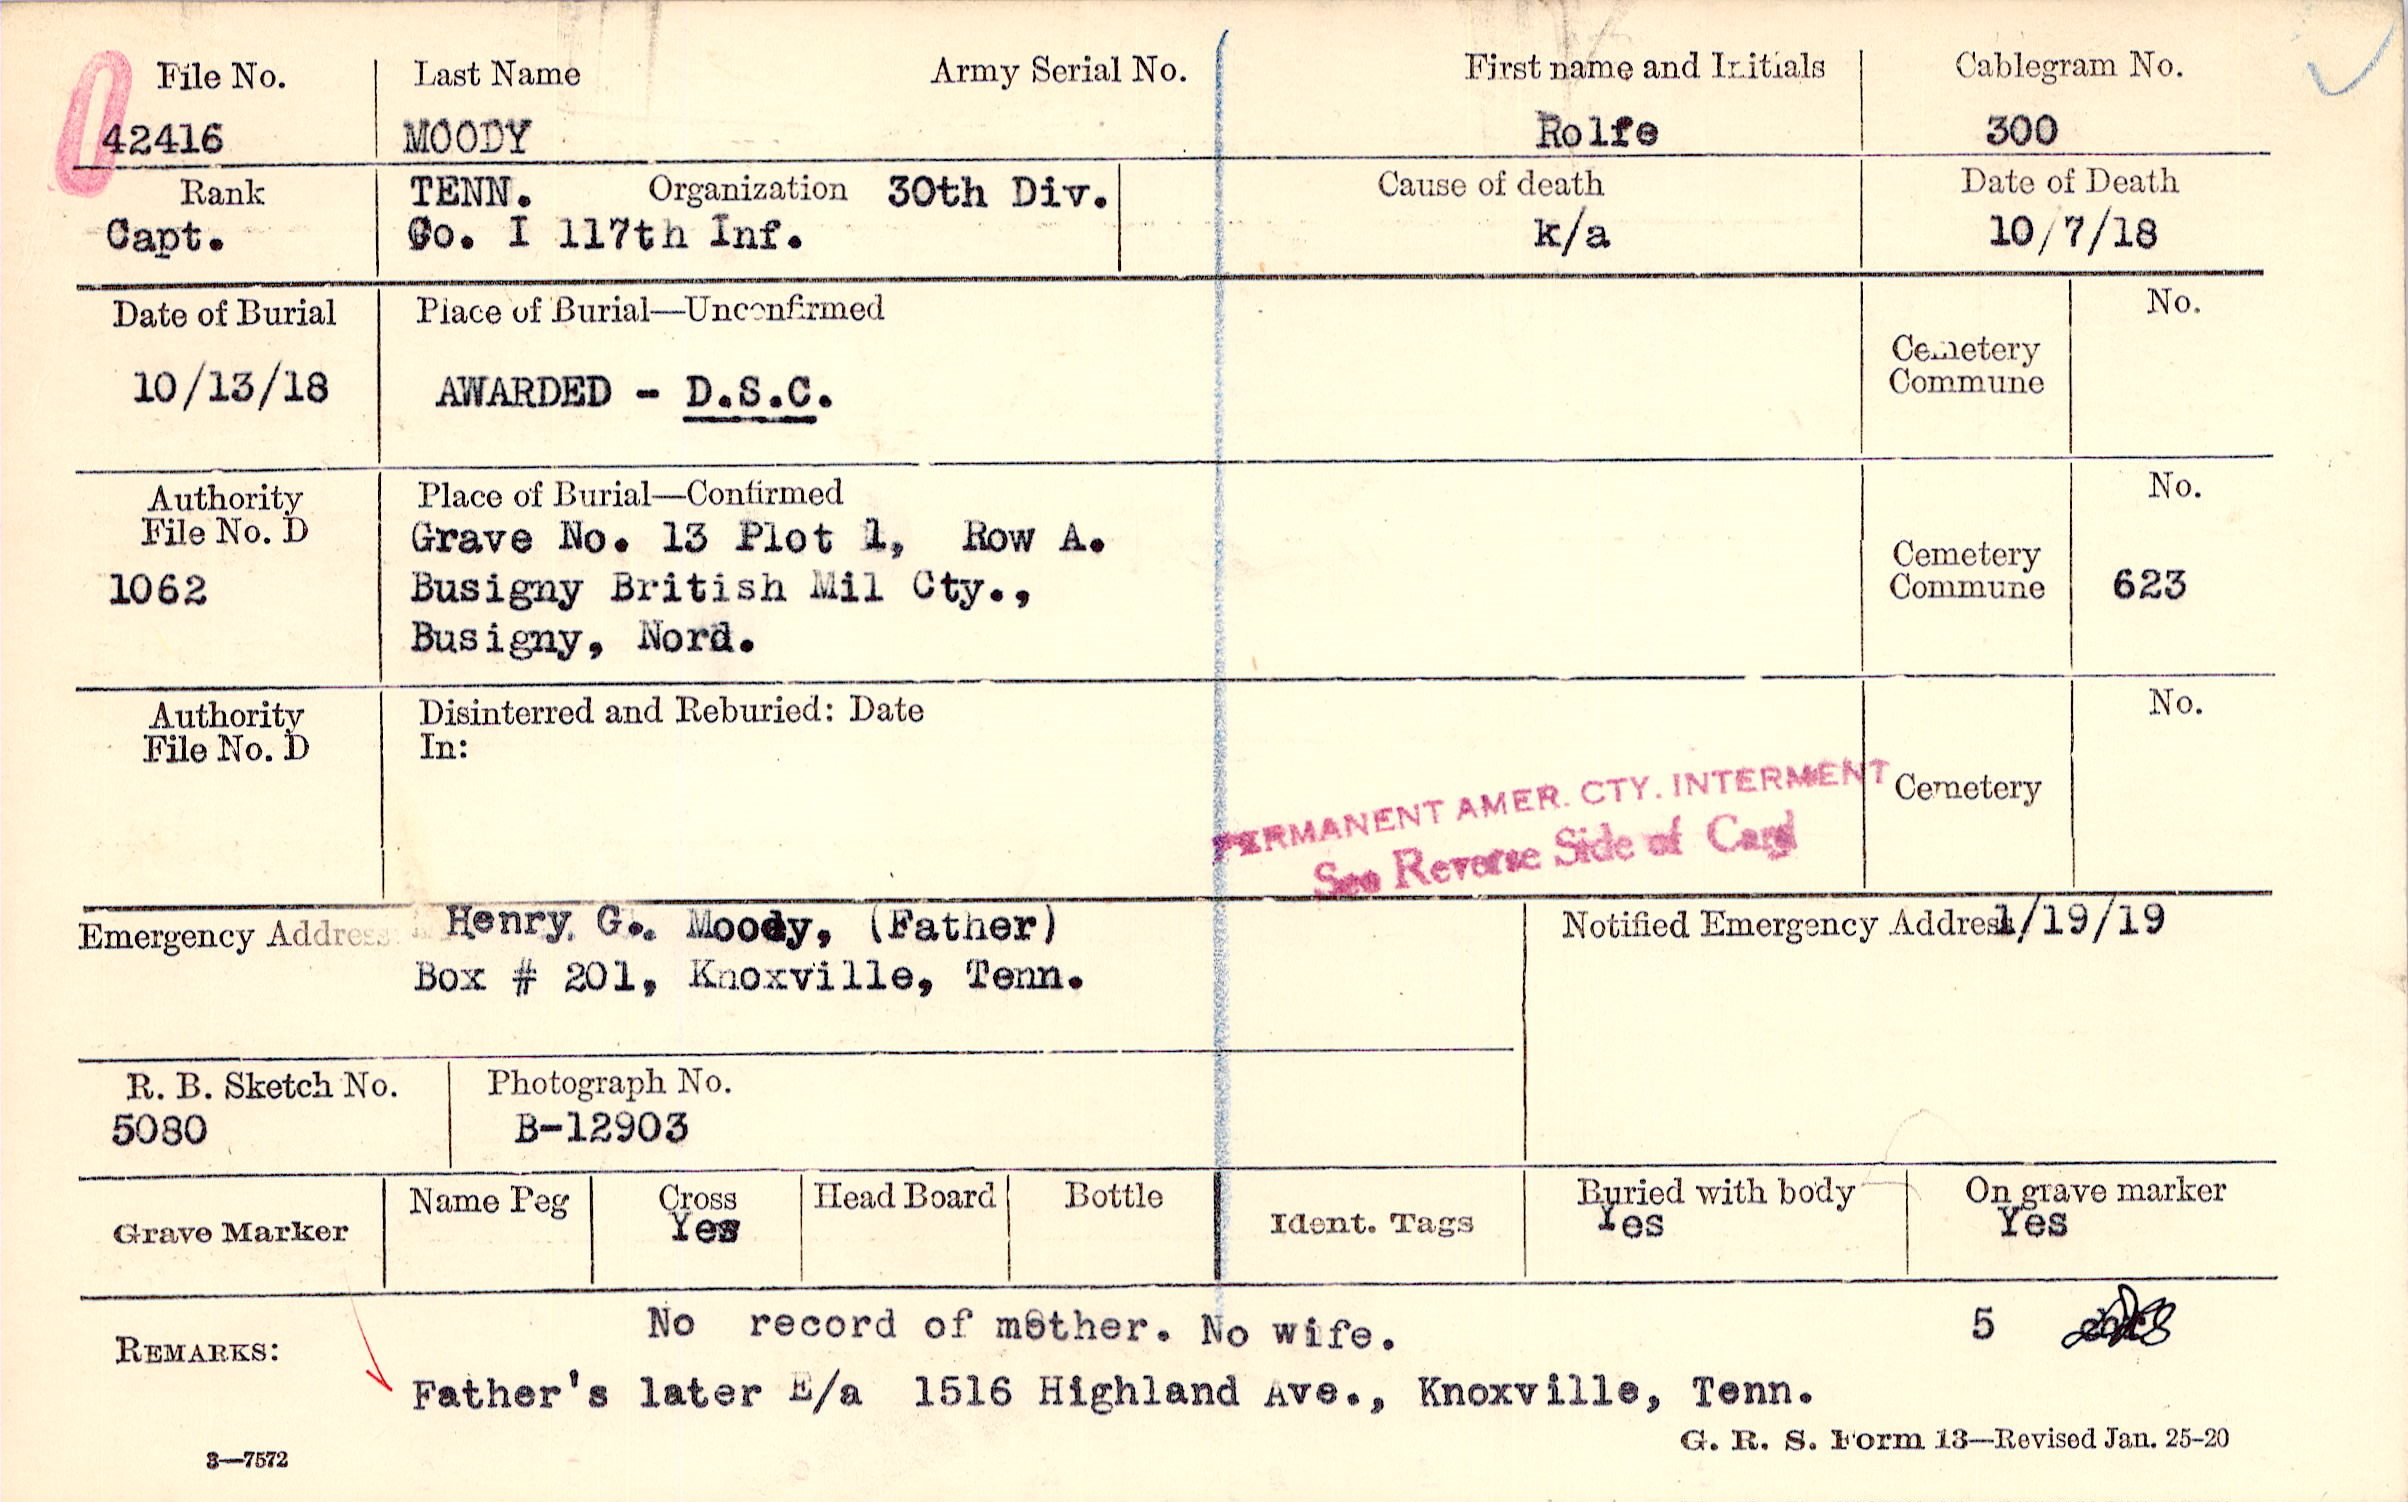 File No. Last Name Army Serial No. First name and Initials Cablegram No.
42416 MOODY Rolfe 300
Rank TENN. Organization 30th Div. Cause of death Date of Death
Capt. Co. I 117th Inf. k/a 10/7/18
Date of Burial Place of Burial—Unconfirmed No.
Cemetery
Commune
10/13/18 AWARDED - D.S.C.
Authority Place of Burial—Confirmed No.
File No. D Grave No. 13 Plot 1, Row A.
Cemetery
1062 Busigny British Mil Cty., Commune 623
Busigny, Nord.
Authority Disinterred and Reburied: Date No.
File No. D In:
PERMANENT AMER. CTY. INTERMENT Cemetery
See Reverse Side of Card
Emergency Address Henry G. Moody, (Father) Notified Emergency Address 1/19/19
Box # 201, Knoxville, Tenn.
R. B. Sketch No. Photograph No.
5080 B-12903
Name Peg Cross Head Board Bottle Buried with body On grave marker
Grave Marker Yes Ident. Tags Yes Yes
No record of mother. No wife. 5
REMARKS:
Father's later E/a 1516 Highland Ave., Knoxville, Tenn.
G. R. S. Form 13—Revised Jan. 25-20
3—7572